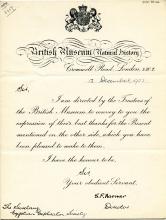 British Museum (Natural History)
Cromwell Road, London, S.W.7.
December, 19
Sir,
I am directed by the Trustees
of the British Museum to convey to you the
expression of their best thanks for the Present
mentioned on the other side, which you have
been pleased to make to them.
I have the honour to be,
Sir,
Your obedient Servant,
S.F. Harmer
Director
The Secretary
Egyptian Exploration Society